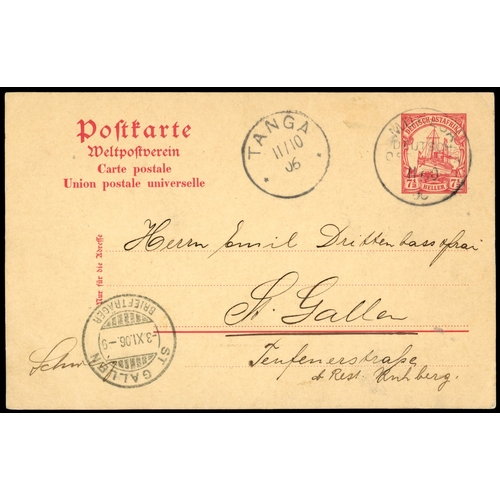 Postkarte
Weltpostverein
Carte postale
Union postale universelle
Nur für die Adresse
TANGA
11/10
06
DEUTSCH-OSTAFRIKA
7½ HELLER 7½
Herrn Emil
St. Gallen
Teufenerstraße
ST. GALLEN
-3.XI.06.-9
BRIEFTRÄGER